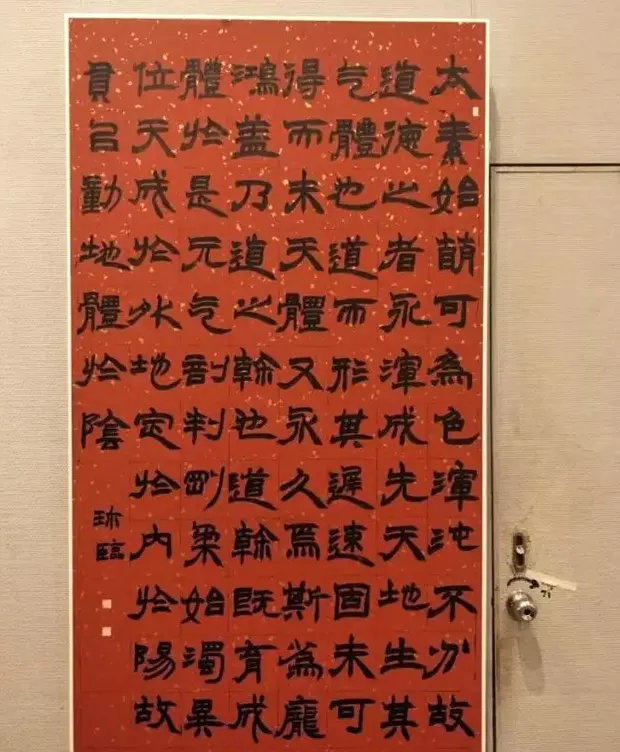 太素始萌可為色渾沌不分故
道德之者永渾成先天地生其
气體也道而形其遲速固未可
得而未天體又永久焉斯為龐
鴻蓋乃道之幹也道幹既育成
體於是元气剖判剛柔始濁異
位天成於外地定於內於陽故
員㠯動地體於陰
珎臨